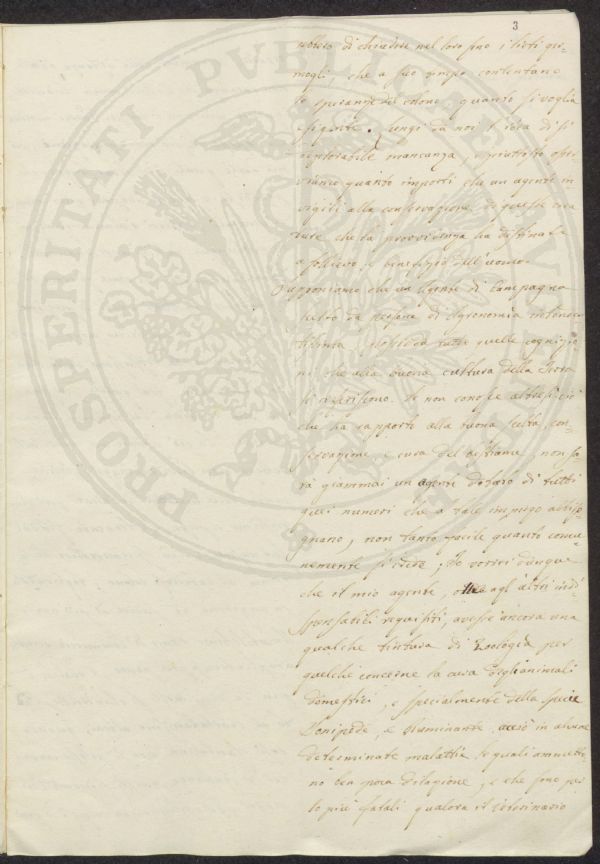 3
di chiudere nel loro seno i
mogli, che a suo tempo contentano
le speranze del colono, quanto si voglia
esigente. Lungi da noi l'idea di sì
deplorabile mancanza, e piuttosto osser
viamo quanto importi che un agente in
vigili alla conservazione di queste crea
ture che la provvidenza ha destinate
a sollievo, e benefizio dell'uomo.
Supponiamo che un Agente di Campagna
di Agronomia
possieda tutte quelle cognizio
ni che alla buona cultura della Terra
si riferiscono. Se non conosce altresì ciò
che ha rapporto alla buona scelta, con
servazione, e cura del bestiame, non sa
rà giammai un agente dotato di tutti
quei numeri che a tale impiego abbiso
gnano, non tanto facile quanto comu
nemente si crede, Io vorrei dunque
che il mio agente, oltre agl'altri indi
spensabili requisiti, avesse ancora una
qualche tintura di Zoologia per
quelche concerne la cura degli animali
domestici, e specialmente della specie
Sonipede, e Ruminante in alcune
determinate malattie, le quali ammetto
no ben poca dilazione, e che sono per
lo più fatali qualora il Veterinario
PROSPERITATI PUBLICAE AUGENDAE